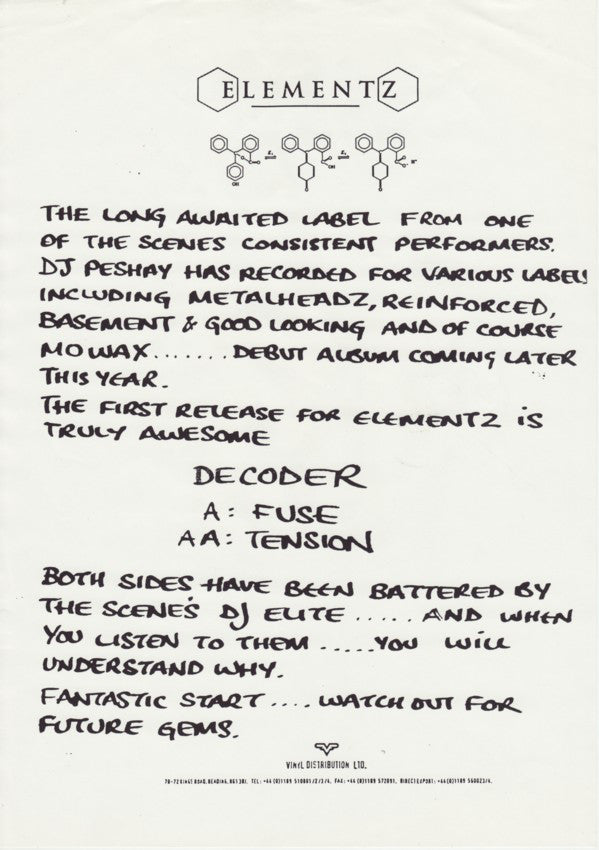 ELEMENTZ
THE LONG AWAITED LABEL FROM ONE
OF THE SCENES CONSISTENT PERFORMERS.
DJ PESHAY HAS RECORDED FOR VARIOUS LABELS
INCLUDING METALHEADZ, REINFORCED,
BASEMENT & GOOD LOOKING AND OF COURSE
MO WAX....... DEBUT ALBUM COMING LATER
THIS YEAR.
THE FIRST RELEASE FOR ELEMENTZ IS
TRULY AWESOME
DECODER
A: FUSE
AA: TENSION
BOTH SIDES HAVE BEEN BATTERED BY
THE SCENE'S DJ ELITE ..... AND WHEN
YOU LISTEN TO THEM .....YOU WILL
UNDERSTAND WHY.
FANTASTIC START .... WATCH OUT FOR
FUTURE GEMS.
VINYL DISTRIBUTION LTD.